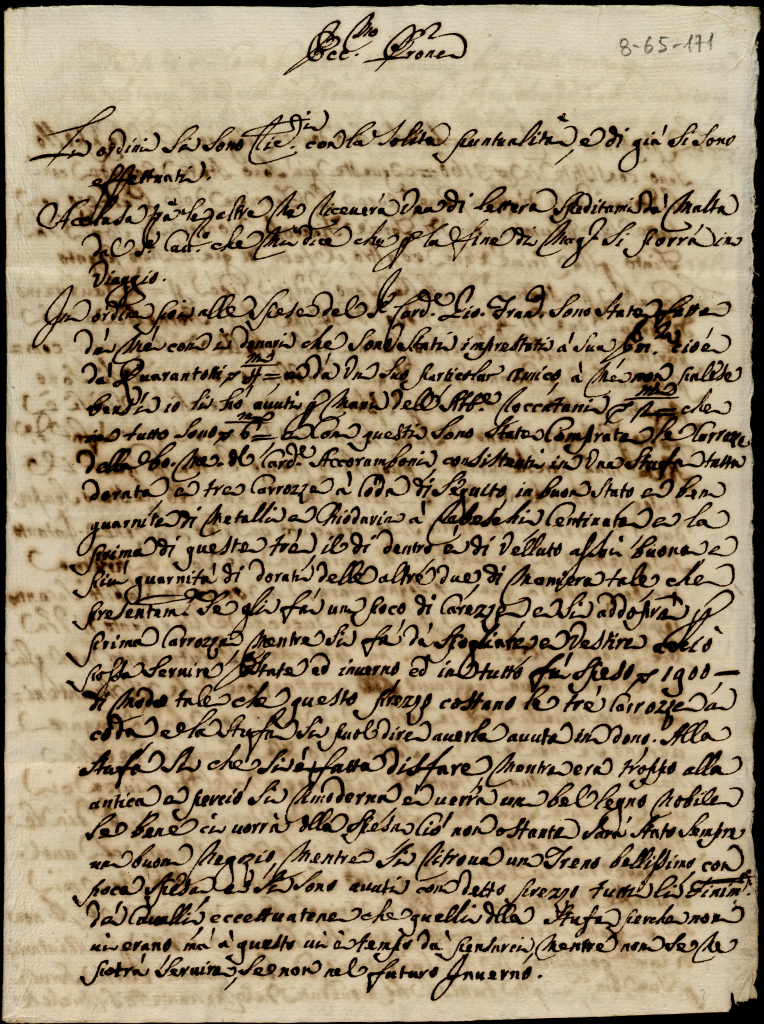 8-65-171
Ecc.mo Prone
Li ordini si sono con la solita puntualità, e di già si sono
effettuati.
Acclusa p. le altre ne riceverà una di lettera speditami da Malta
dal S.r che mi dice che p. la fine di Mag.o si porrà in
viaggio.
In ordine poi alle spese del S.r Card.e Gio. Fran.o sono state fatte
da me con denari che sono stati imprestati à sua Em.za cioè
da Quarantotti e da un suo particolar amico, à me non palese
bensì io li ho avuti p. mano dell' Ab.e Toccatani che
in tutto sono e con questi sono state comprate le Carrozze
della bo. me. del Card.e Accoramboni consistenti in una Stufa tutta
dorata, e tre Carrozze à coda di seguito, in buon stato e ben
guarnite di metalli e à Rabeschi Centinate e la
prima di queste trè, il di dentro è di velluto assai buono e
più guarnita di dorati delle altre due di maniera tale che
presentem.te se gli fà un poco di e si addoprà p.
prima Carrozza mentre si fà da spogliare, e vestire acciò
possa servire state ed inverno ed in tutto fù speso 1900 —
di modo tale che questo prezzo costano le trè Carrozze à
coda e la Stufa si puol dire averla avuta in dono. Alla
Stufa si che si è fatta disfare mentre era troppo alla
antica e perciò si rimoderna e verrà un bel legno nobile
se bene ci vorrà della spesa ciò non ostante sarà stato sempre
un buon negozio, mentre si ritrova un Treno bellissimo con
poca spesa ed si sono avuti con detto prezzo tutti li Finim.ti
da Cavalli eccettuatene che quelli della Stufa perche non
vi erano mà à questo vi è tempo da pensarci, mentre non se ne
potrà servire, se non nel futuro Inverno.